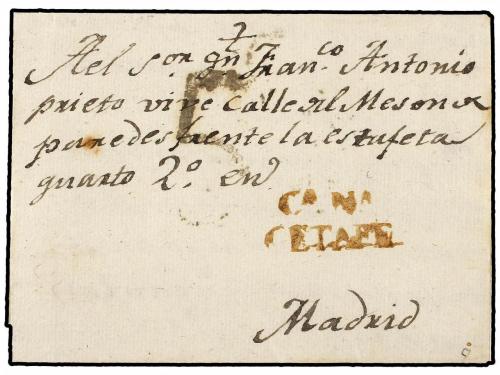 Ael Sor Dn Franco Antonio
prieto vive Calle del Meson de
paredes frente la estafeta
quarto 2º en
CA.NA
GETAFE
Madrid